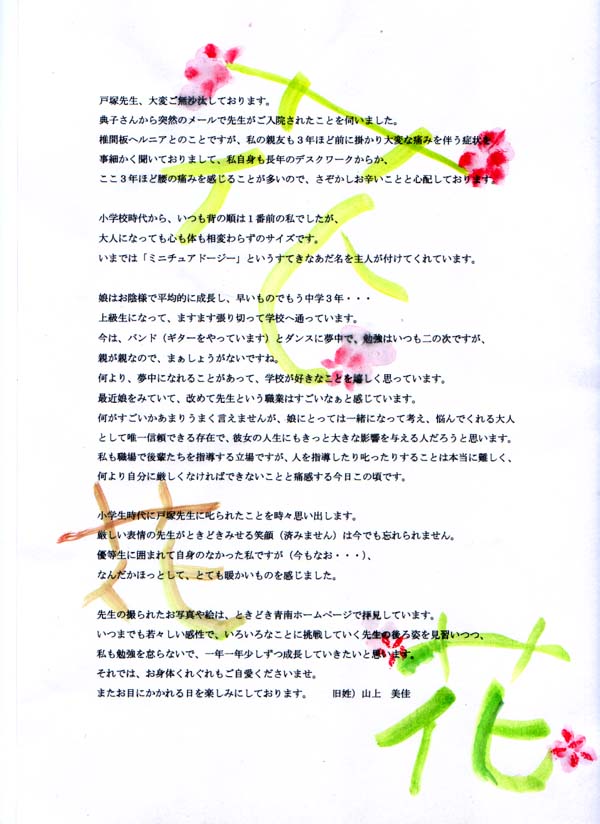 戸塚先生、大変ご無沙汰しております。
典子さんから突然のメールで先生がご入院されたことを伺いました。
椎間板ヘルニアとのことですが、私の親友も３年ほど前に掛かり大変な痛みを伴う症状を
事細かく聞いておりまして、私自身も長年のデスクワークからか、
ここ３年ほど腰の痛みを感じることが多いので、さぞかしお辛いことと心配しております。
小学校時代から、いつも背の順は１番前の私でしたが、
大人になっても心も体も相変わらずのサイズです。
いまでは「ミニチュアドージー」というすてきなあだ名を主人が付けてくれています。
娘はお陰様で平均的に成長し、早いものでもう中学３年・・・
上級生になって、ますます張り切って学校へ通っています。
今は、バンド（ギターをやっています）とダンスに夢中で、勉強はいつも二の次ですが、
親が親なので、まぁしょうがないですね。
何より、夢中になれることがあって、学校が好きなことを嬉しく思っています。
最近娘をみていて、改めて先生という職業はすごいなぁと感じています。
何がすごいかあまりうまく言えませんが、娘にとっては一緒になって考え、悩んでくれる大人
として唯一信頼できる存在で、彼女の人生にもきっと大きな影響を与える人だろうと思います。
私も職場で後輩たちを指導する立場ですが、人を指導したり叱ったりすることは本当に難しく、
何より自分に厳しくなければできないことと痛感する今日この頃です。
小学生時代に戸塚先生に叱られたことを時々思い出します。
厳しい表情の先生がときどきみせる笑顔（済みません）は今でも忘れられません。
優等生に囲まれて自身のなかった私ですが（今もなお・・・）、
なんだかほっとして、とても暖かいものを感じました。
先生の撮られたお写真や絵は、ときどき青南ホームページで拝見しています。
いつまでも若々しい感性で、いろいろなことに挑戦していく先生の後ろ姿を見習いつつ、
私も勉強を怠らないで、一年一年少しずつ成長していきたいと思います。
それでは、お身体くれぐれもご自愛くださいませ。
またお目にかかれる日を楽しみにしております。　　旧姓）山上　美佳
花
花
花